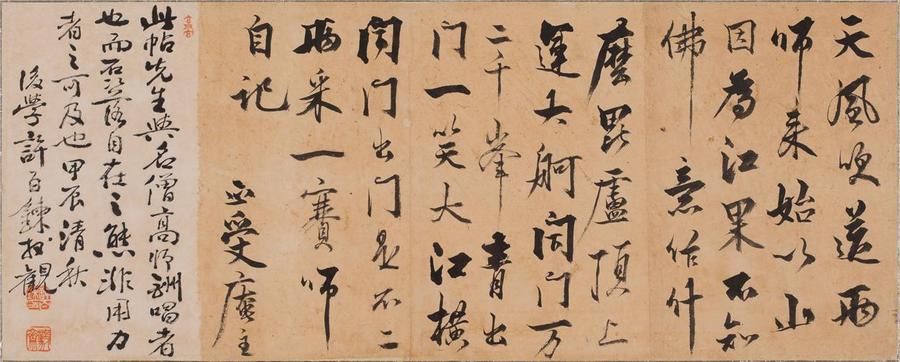 天風吹送兩
師來始以山
因為江果不知
佛意作什
麽毘盧頂上
運大舸門万
二千峯青出
門一笑大江橫
門出門是不二
采一賽師
自記
正受庵主
此帖先生與名僧高師酬唱者
也而落自在之態非用力
者之可及也甲辰清秋
後學許百鍊拜觀